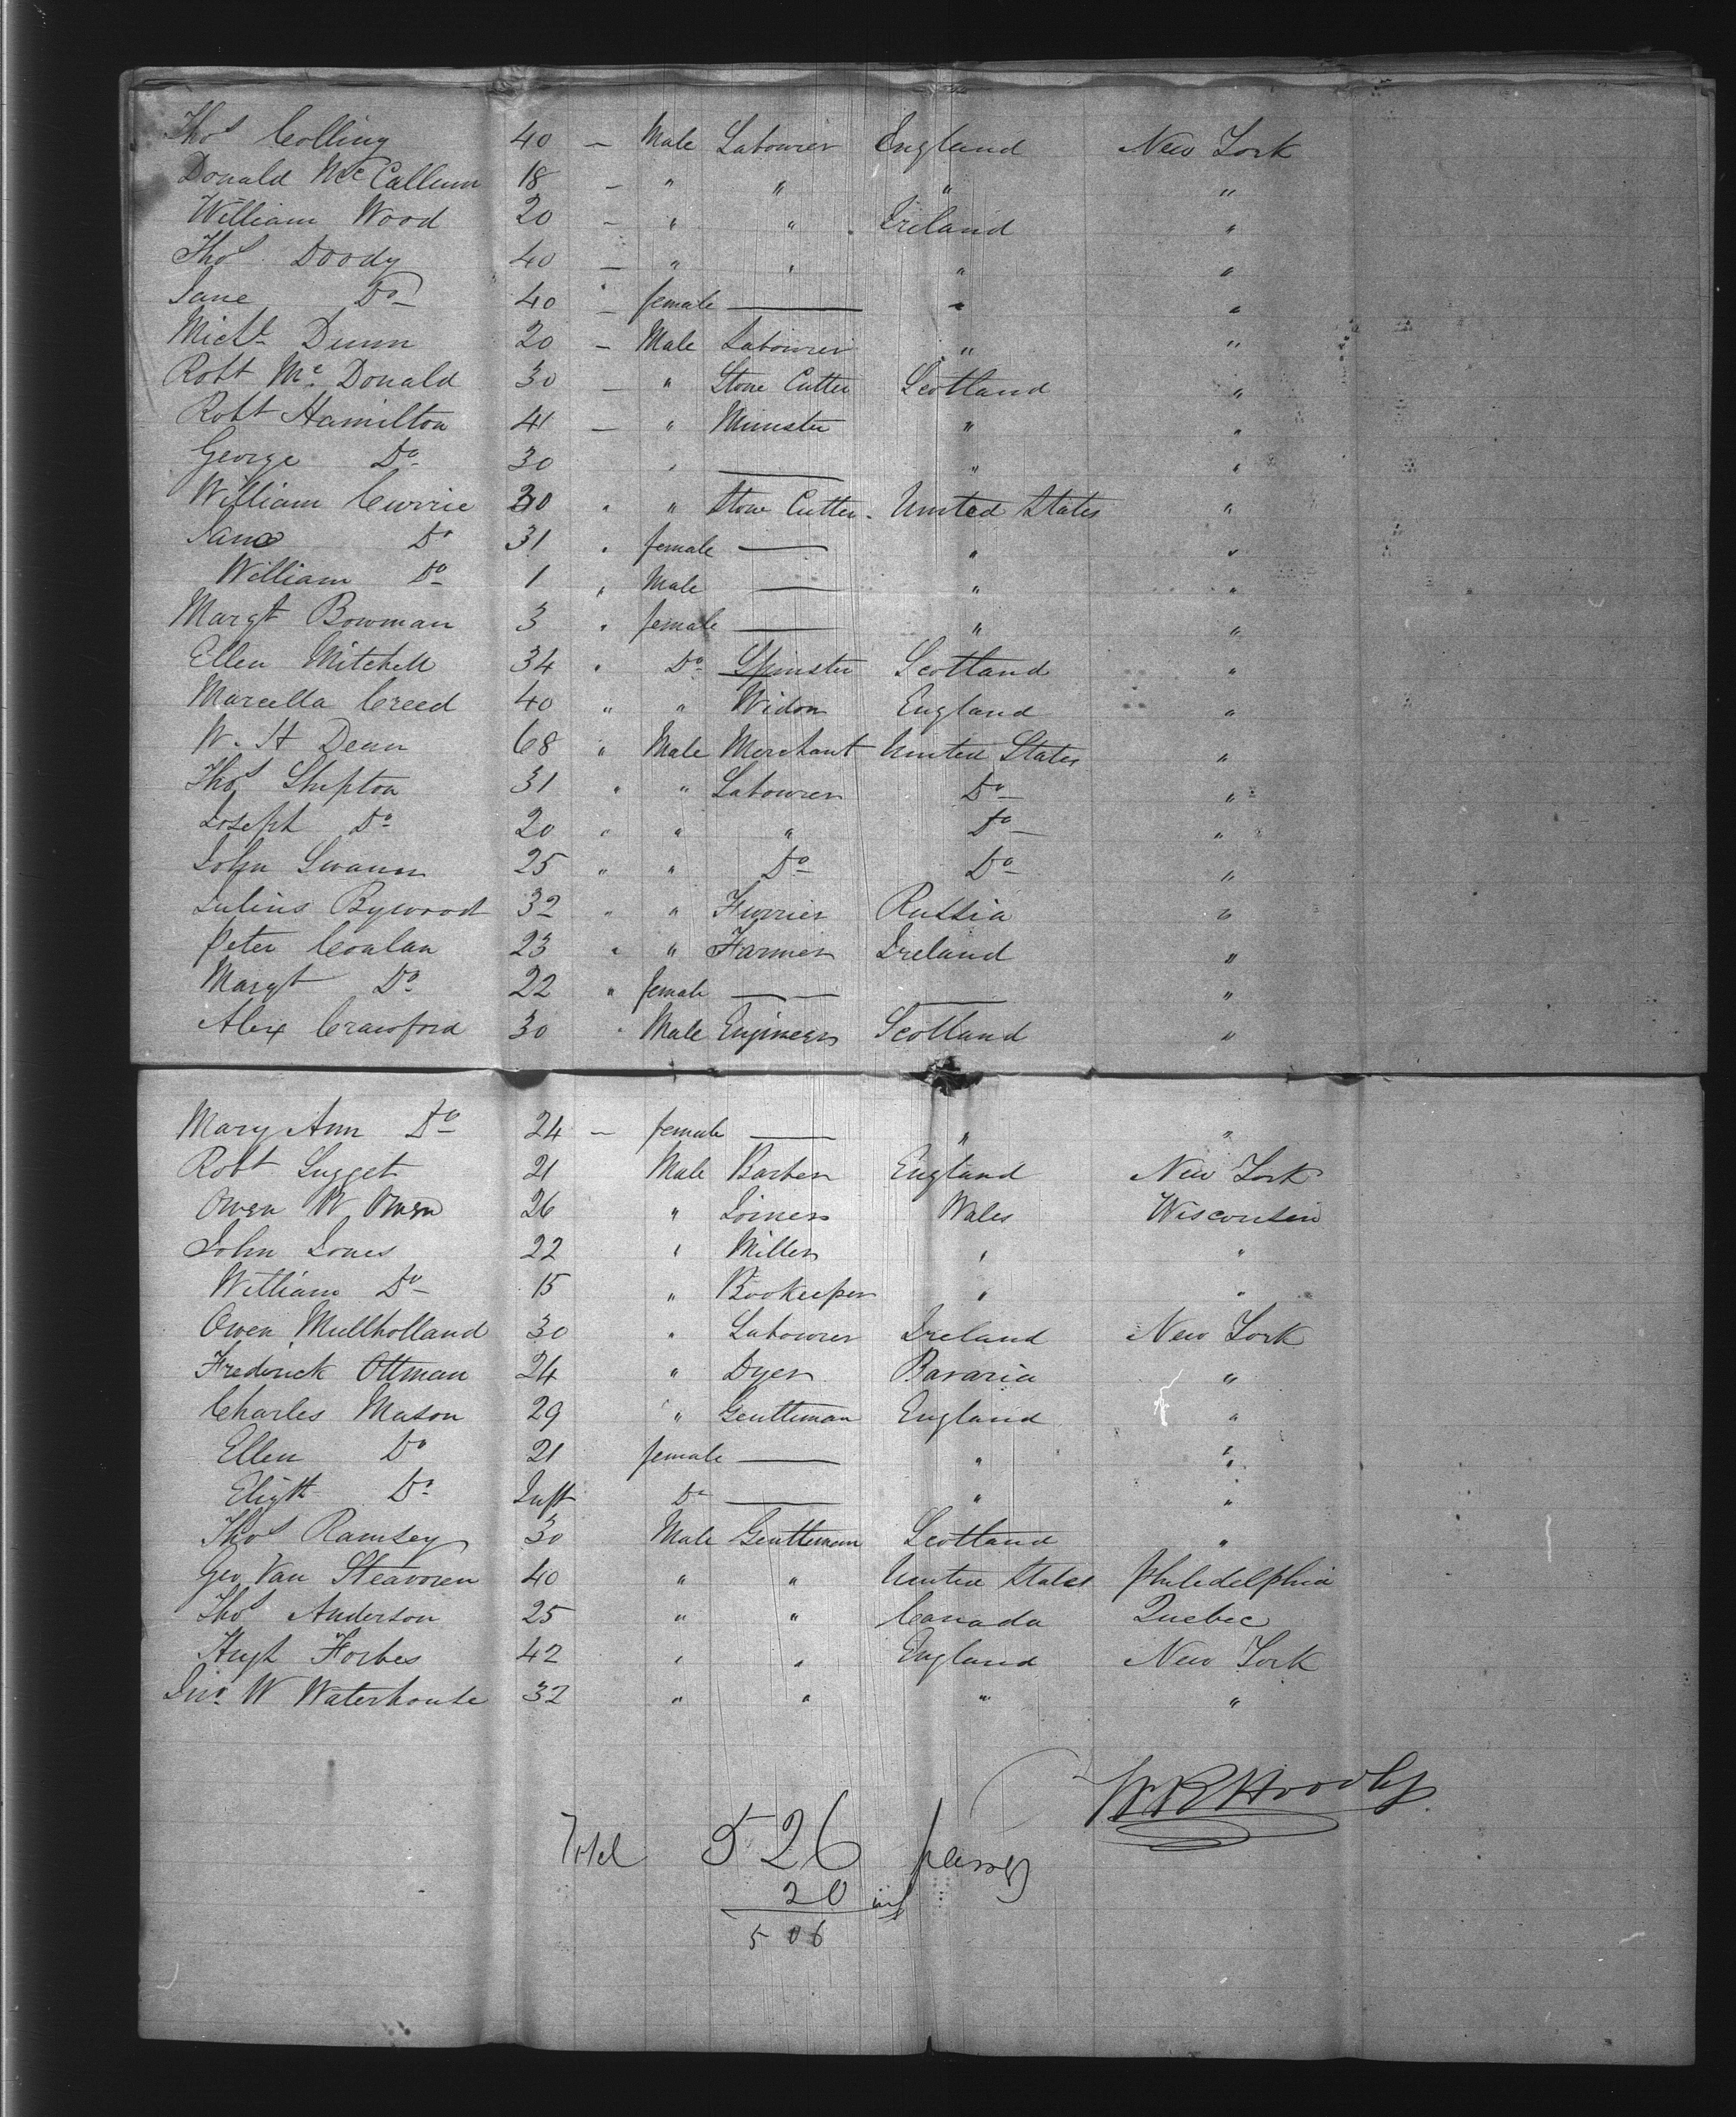 Thos Colling 40 – Male Labourer England New York
Donald McCallum 18 – " " " "
William Wood 20 – " " Ireland "
Thos Doody 40 – " " " "
Jane Do 40 – female — " "
Michl Dunn 20 – Male Labourer " "
Robt Mc Donald 30 – " Stone Cutter Scotland "
Robt Hamilton 41 – " Minister " "
George Do 30 " — " "
William Currie 30 " " Stone Cutter United States "
Jane Do 31 " female — " "
William Do 1 " Male — " "
Margt Bowman 3 " female — " "
Ellen Mitchell 34 " Do Spinster Scotland "
Marcella Creed 40 " " Widow England "
W. H Dean 68 " Male Merchant United States "
Thos Shipton 31 " " Labourer Do "
Joseph Do 20 " " " Do "
John Swann 25 " " Do Do "
Julius Bywood 32 " " Furrier Russia "
Peter Conlan 23 " " Farmer Ireland "
Margt Do 22 " female — — "
Alex Crawford 30 " Male Engineer Scotland "
Mary Ann Do 24 – female — " "
Robt Sugget 21 Male Barber England New York
Owen W Owen 26 " Joiner Wales Wisconsin
John Jones 22 " Miller " "
William Do 15 " Bookeeper " "
Owen Mullholland 30 " Labourer Ireland New York
Frederick Ottman 24 " Dyer Bavaria "
Charles Mason 29 " Gentleman England "
Ellen Do 21 female — " "
Elizth Do Inft Do — " "
Thos Ramsey 30 Male Gentleman Scotland "
Geo Van Steavoren 40 " " United States Philedelphia
Thos Anderson 25 " " Canada Quebec
Hugh Forbes 42 " " England New York
Jno W Waterhouse 32 " " " "
Total 526 passeg
20 inf
506